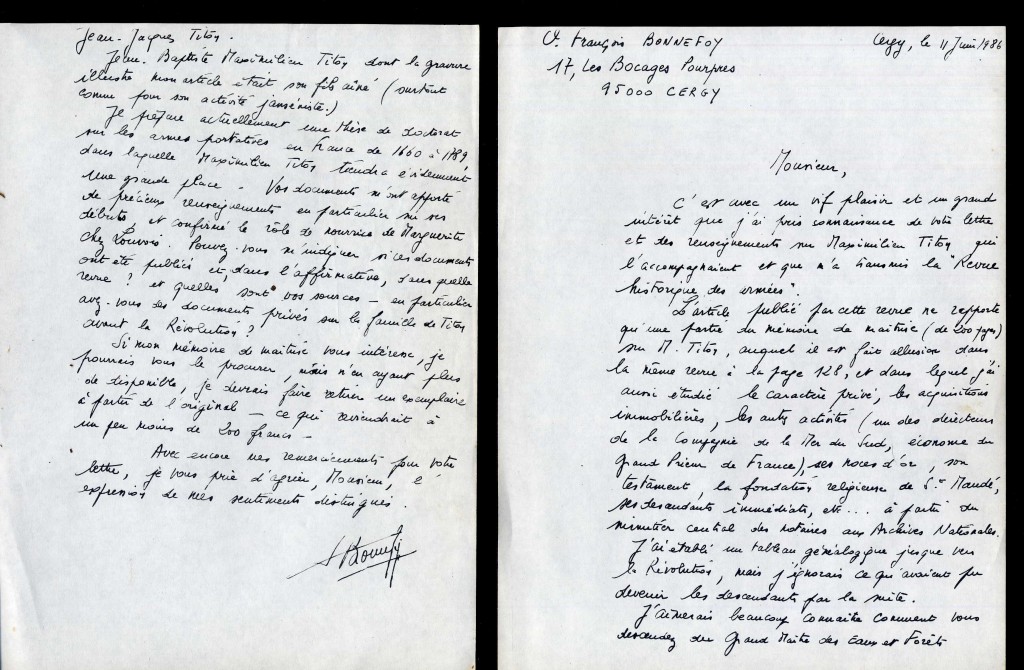 Cl. François BONNEFOY
Cergy, le 11 Juin 1986
17, Les Bocages Pourpres
95000 CERGY
Monsieur,
C'est avec un vif plaisir et un grand
intérêt que j'ai pris connaissance de votre lettre
et des renseignements sur Maximilien Titon qui
l'accompagnaient et que m'a transmis la "Revue
historique des armées".
L'article publié par cette revue ne rapporte
qu'une partie du mémoire de maîtrise (de 200 pages)
sur M. Titon, auquel il est fait allusion dans
la même revue à la page 128, et dans lequel j'ai
aussi étudié le caractère privé, les acquisitions
immobilières, les autres activités (un des directeurs
de la Compagnie de la Mer du Sud, économe du
Grand Prieur de France), ses noces d'or, son
testament, la fondation religieuse de St Mandé,
ses descendants immédiats, etc... à partir du
minutier central des notaires aux Archives Nationales.
J'ai établi un tableau généalogique jusque vers
la Révolution, mais j'ignorais ce qu'avaient pu
devenir les descendants par la suite.
J'aimerais beaucoup connaître comment vous
descendez du Grand Maître des Eaux et Forêts
Jean-Jacques Titon.
Jean-Baptiste Maximilien Titon dont la gravure
illustre mon article était son fils aîné (surtout
connu pour son activité janséniste.)
Je prépare actuellement une thèse de doctorat
sur les armes portatives en France de 1660 à 1789,
dans laquelle Maximilien Titon tiendra évidemment
une grande place - Vos documents m'ont apporté
de précieux renseignements en particulier sur ses
débuts et confirmé le rôle de nourrice de Marguerite
chez Louvois. Pouvez-vous m'indiquer si ces documents
ont été publiés et, dans l'affirmative, dans quelle
revue ? et quelles sont vos sources - en particulier
avez-vous des documents privés sur la famille de Titon
avant la Révolution ?
Si mon mémoire de maîtrise vous intéresse, je
pourrais vous le procurer, mais n'en ayant plus
de disponible, je devrais faire retirer un exemplaire
à partir de l'original - ce qui reviendrait à
un peu moins de 200 francs -
Avec encore mes remerciements pour votre
lettre, je vous prie d'agréer, Monsieur, l'
expression de mes sentiments distingués.